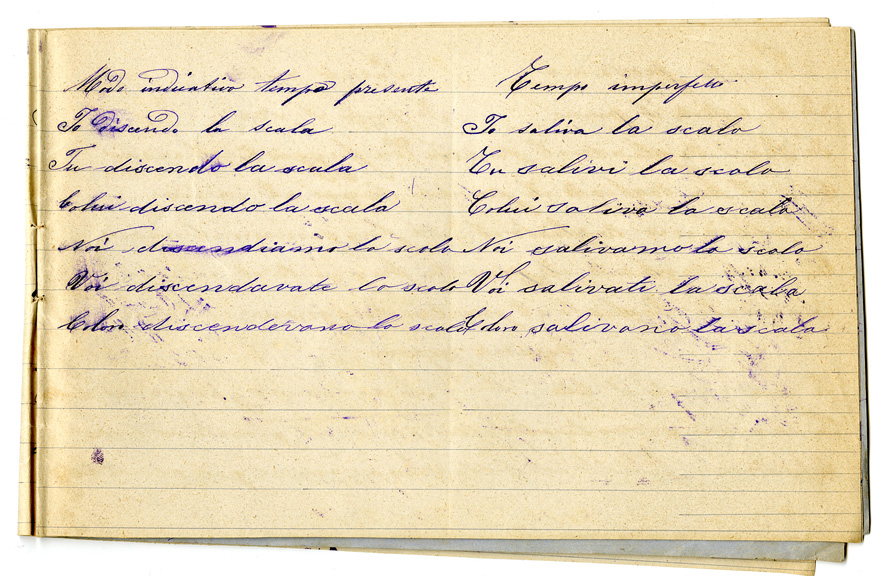 Modo indicativo tempo presente
Io discendo la scala
Tu discendo la scala
Colui discendo la scala
Noi discendiamo la scala
Voi discendavate la scala
Coloro discendevano la scala
Tempo imperfetto
Io saliva la scala
Tu salivi la scala
Colui saliva la scala
Noi salivamo la scala
Voi salivati la scala
Coloro salivano la scala